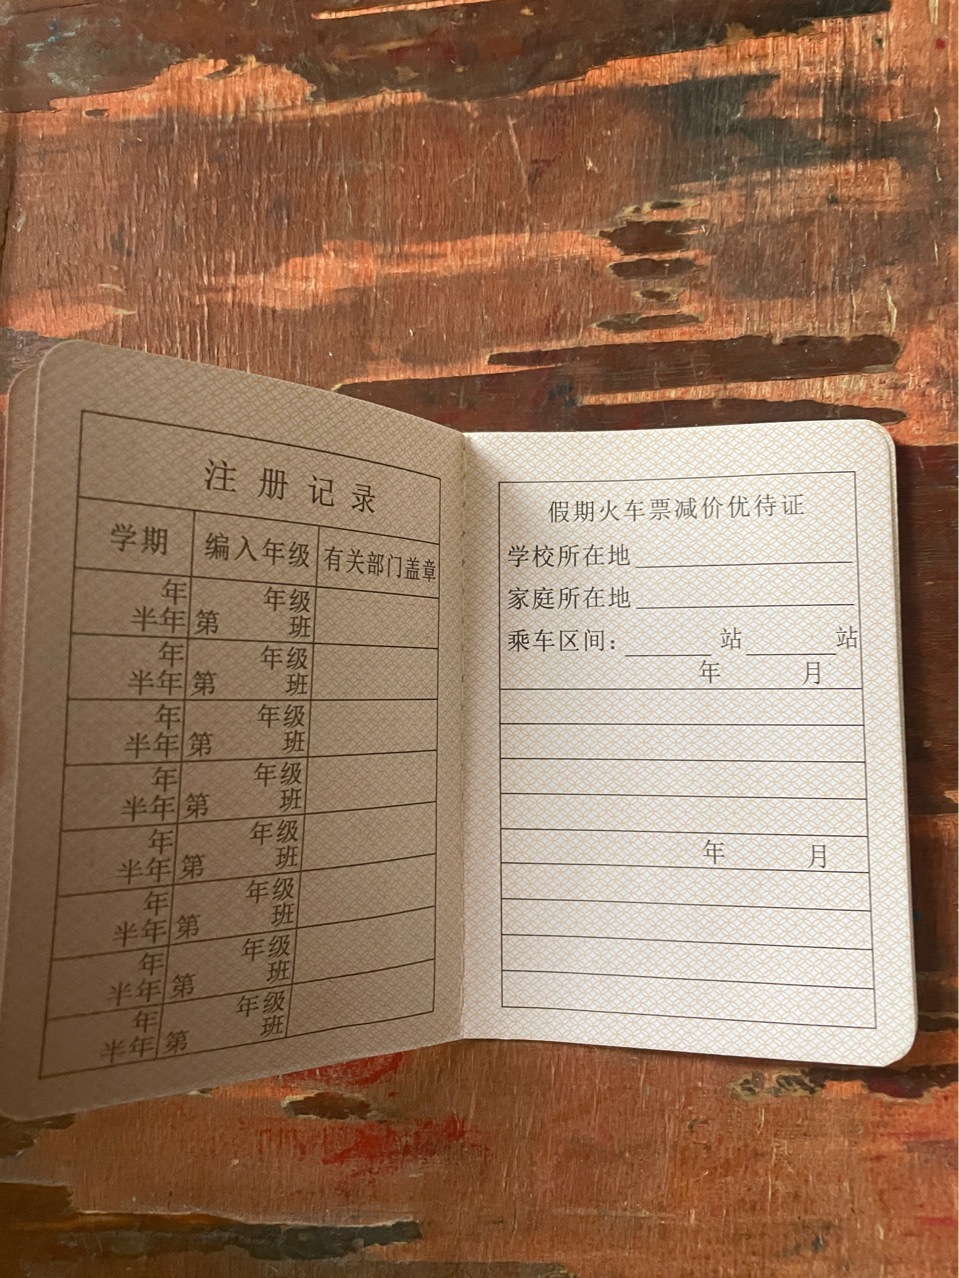 注册记录
学期 编入年级 有关部门盖章
年 年级
半年 第 班
年 年级
半年 第 班
年 年级
半年 第 班
年 年级
半年 第 班
年 年级
半年 第 班
年 年级
半年 第 班
年 年级
半年 第 班
年 年级
半年 第 班
假期火车票减价优待证
学校所在地
家庭所在地
乘车区间： 站 站
年 月
年 月